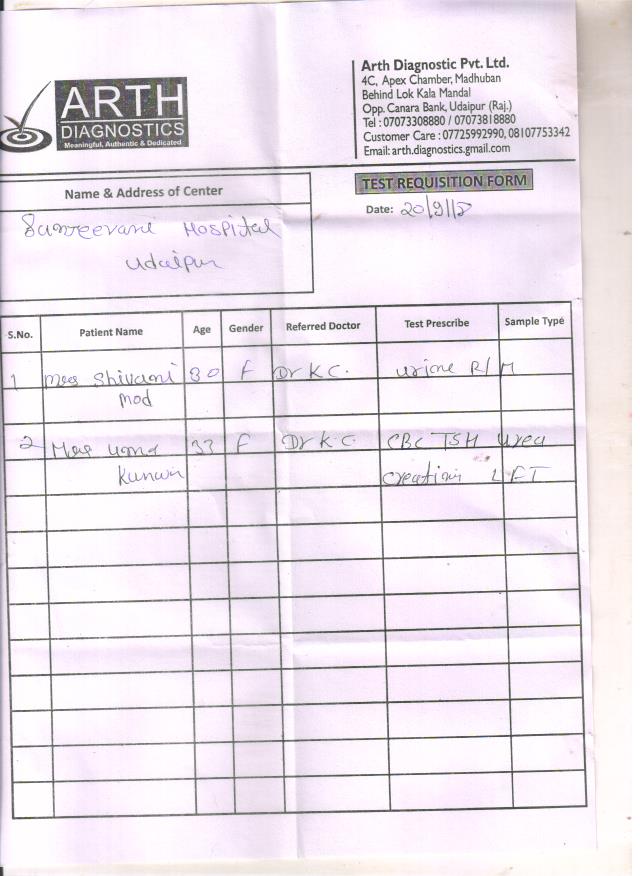 ARTH
DIAGNOSTICS
Meaningful, Authentic & Dedicated
Arth Diagnostic Pvt. Ltd.
4C, Apex Chamber, Madhuban
Behind Lok Kala Mandal
Opp. Canara Bank, Udaipur (Raj.)
Tel : 07073308880 / 07073818880
Customer Care : 07725992990, 08107753342
Email: arth.diagnostics.gmail.com
Name & Address of Center
TEST REQUISITION FORM
Sanjeevani Hospital
Udaipur
Date: 20/9/18
S.No. Patient Name Age Gender Referred Doctor Test Prescribe Sample Type
1 Mrs Shivani 30 F Dr K.C. Urine R/M
mod
2 Mrs Uma 33 F Dr K.C. CBC TSH Urea
Kunwar Creatinin LFT